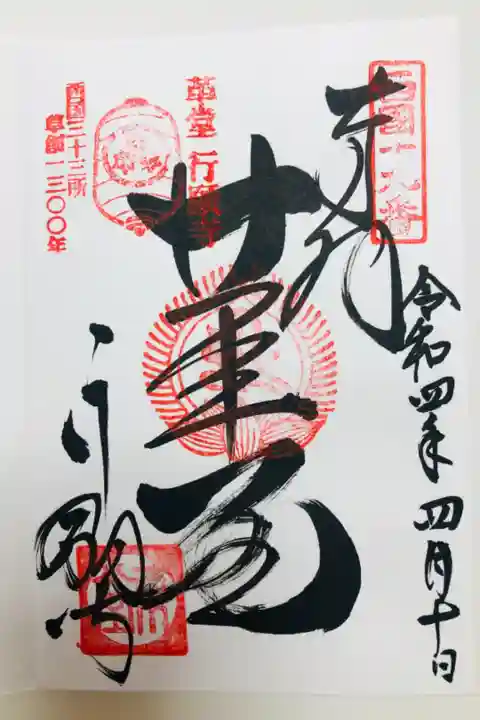 西國十九番
奉拝
令和四年四月十日
革堂行願寺
革堂
西国三十三所
草創一三〇〇年
行願寺